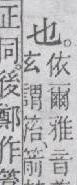 依爾雅音
也。玄謂箈、箭
正同。後鄭作